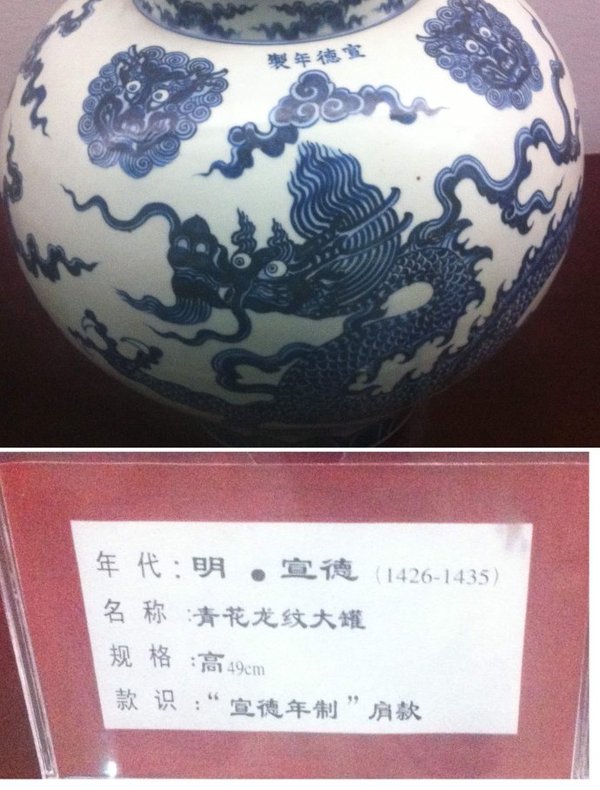 宣德年製
年代：明．宣德（1426-1435）
名称：青花龙纹大罐
规格：高49cm
款识：“宣德年制”肩款